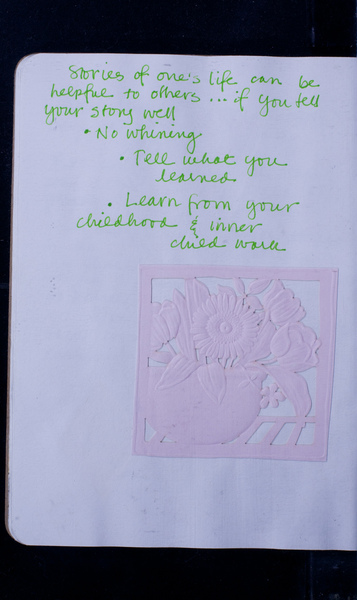 Stories of one's life can be
helpful to others... if you tell
your story well
• No whining
• Tell what you
learned
• Learn from your
childhood & inner
child work